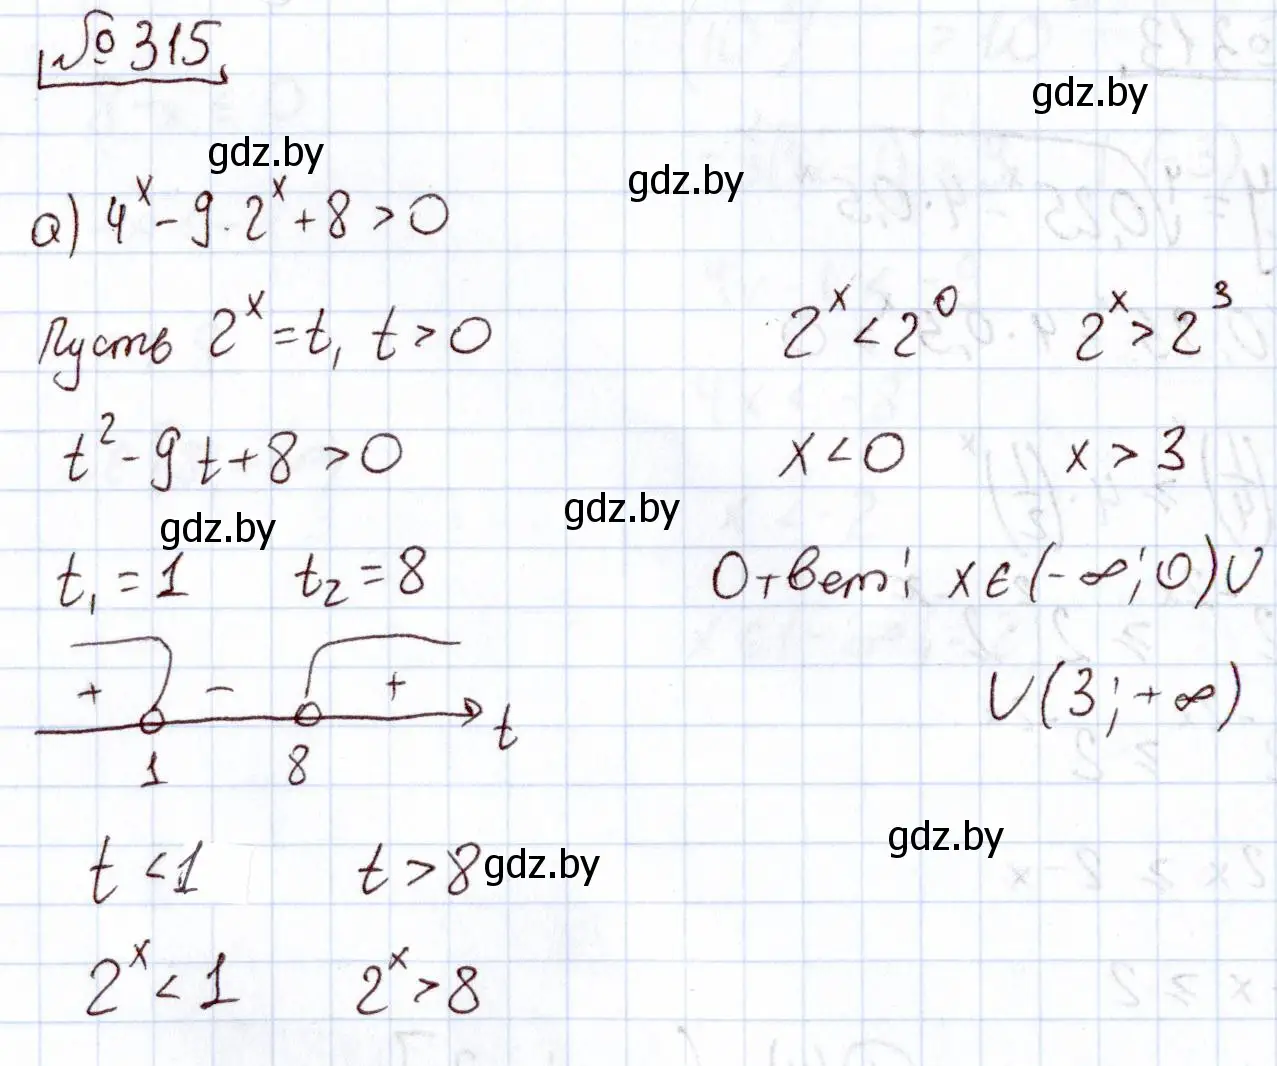 № 315
gdz.by
gdz.by
gdz.by
а) 4^x - 9 · 2^x + 8 > 0
Пусть 2^x = t, t > 0
t^2 - 9t + 8 > 0
gdz.by
gdz.by
t₁ = 1 t₂ = 8
+ - +
1 8 t
t < 1 t > 8
gdz.by
2^x < 1 2^x > 8
2^x < 2^0 2^x > 2^3
x < 0 x > 3
Ответ: x ∈ (-∞; 0) ∪
∪ (3; +∞)
gdz.by